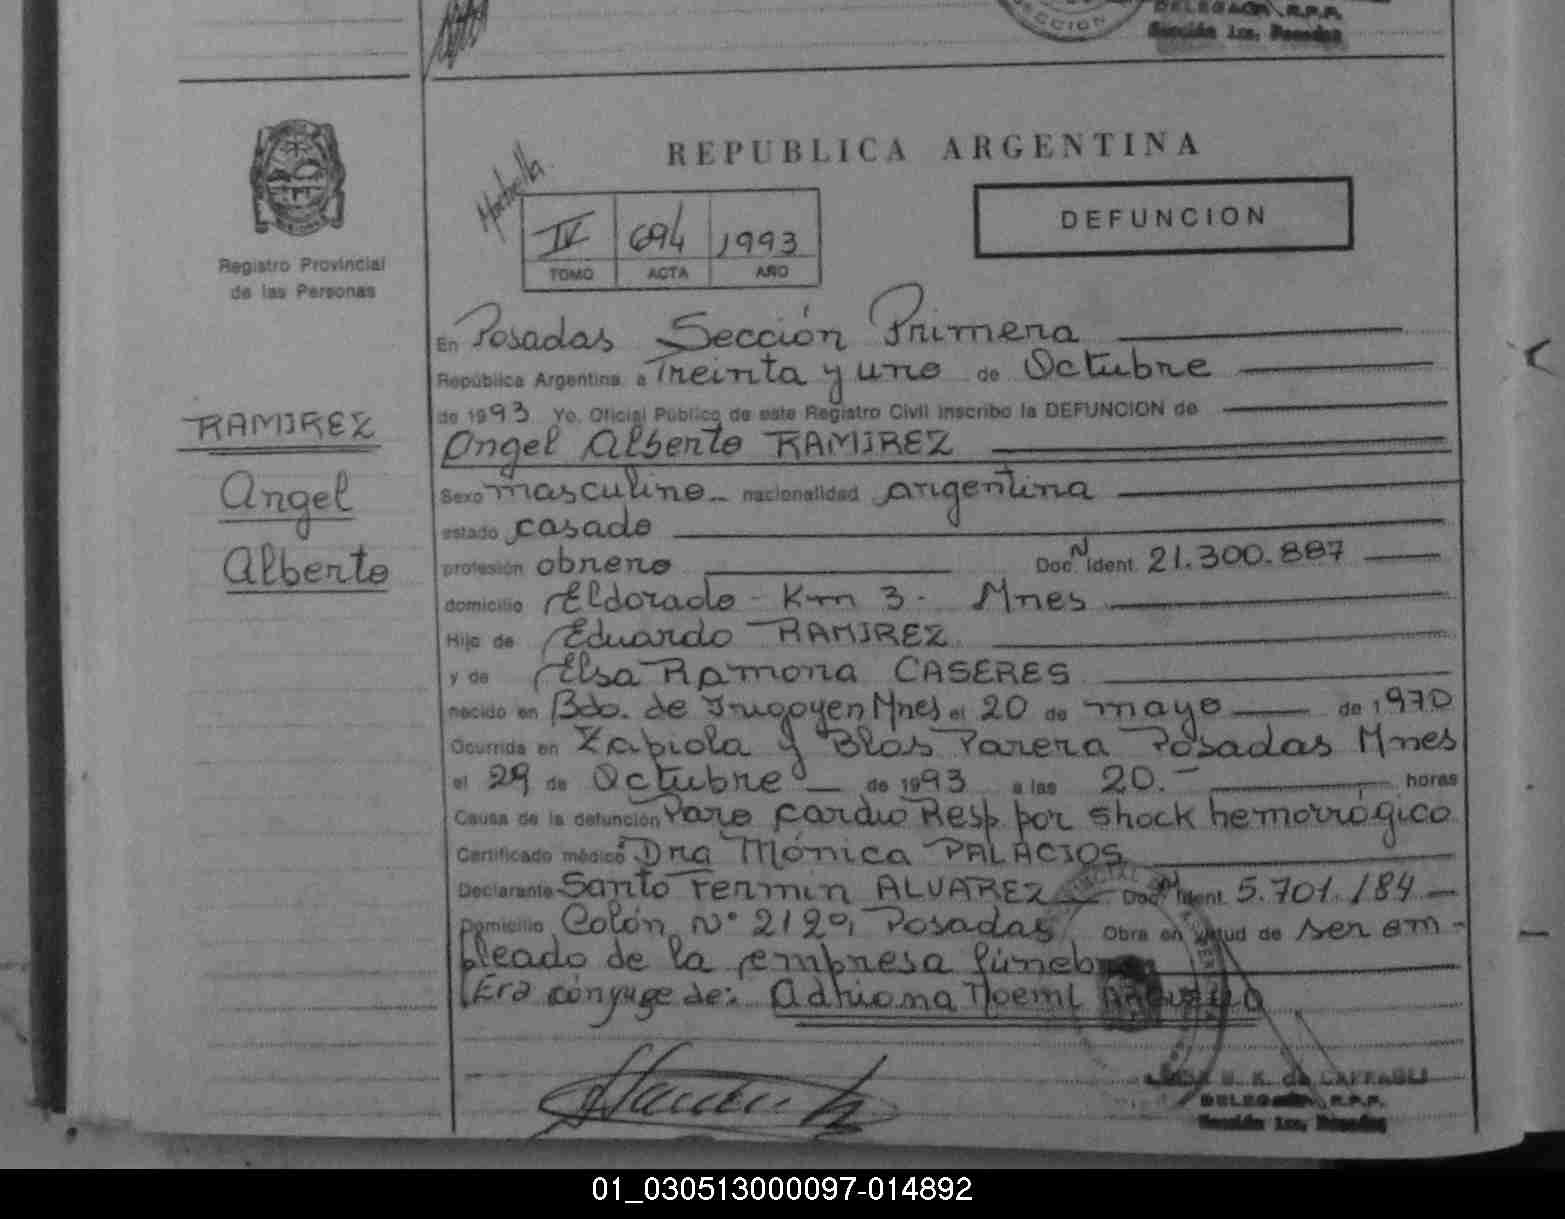 SECCION
DELEGADA R.P.P.
Sección 1ra. Posadas
REPUBLICA ARGENTINA
DEFUNCION
IV 694 1993
TOMO ACTA AÑO
Registro Provincial
de las Personas
RAMIREZ
Angel
Alberto
En Posadas Sección Primera
República Argentina a Treinta y uno de Octubre
de 1993 Yo, Oficial Público de este Registro Civil inscribo la DEFUNCION de
Angel Alberto RAMIREZ
Sexo masculino nacionalidad argentina
estado casado
profesión obrero Doc. N Ident. 21.300.887
domicilio Eldorado - Km 3 - Mnes
Hijo de Eduardo RAMIREZ
y de Elsa Ramona CASERES
nacido en Bdo. de Irugoyen Mnes el 20 de mayo de 1970
Ocurrida en Zapiola y Blas Parera Posadas Mnes
el 29 de Octubre de 1993 a las 20.- horas
Causa de la defunción Paro Cardio Resp. por shock hemorrógico
Certificado médico Dra Mónica PALACIOS
Declarante Santo Fermin ALVAREZ Doc. N Ident. 5.701.184
Domicilio Colón N° 2120, Posadas Obra en virtud de ser em-
pleado de la empresa fúneb
Era cónyuge de: Adriana Noemi
DE CAFFARELI
DELEGADA R.P.P.
Sección 1ra. Posadas
01_030513000097-014892